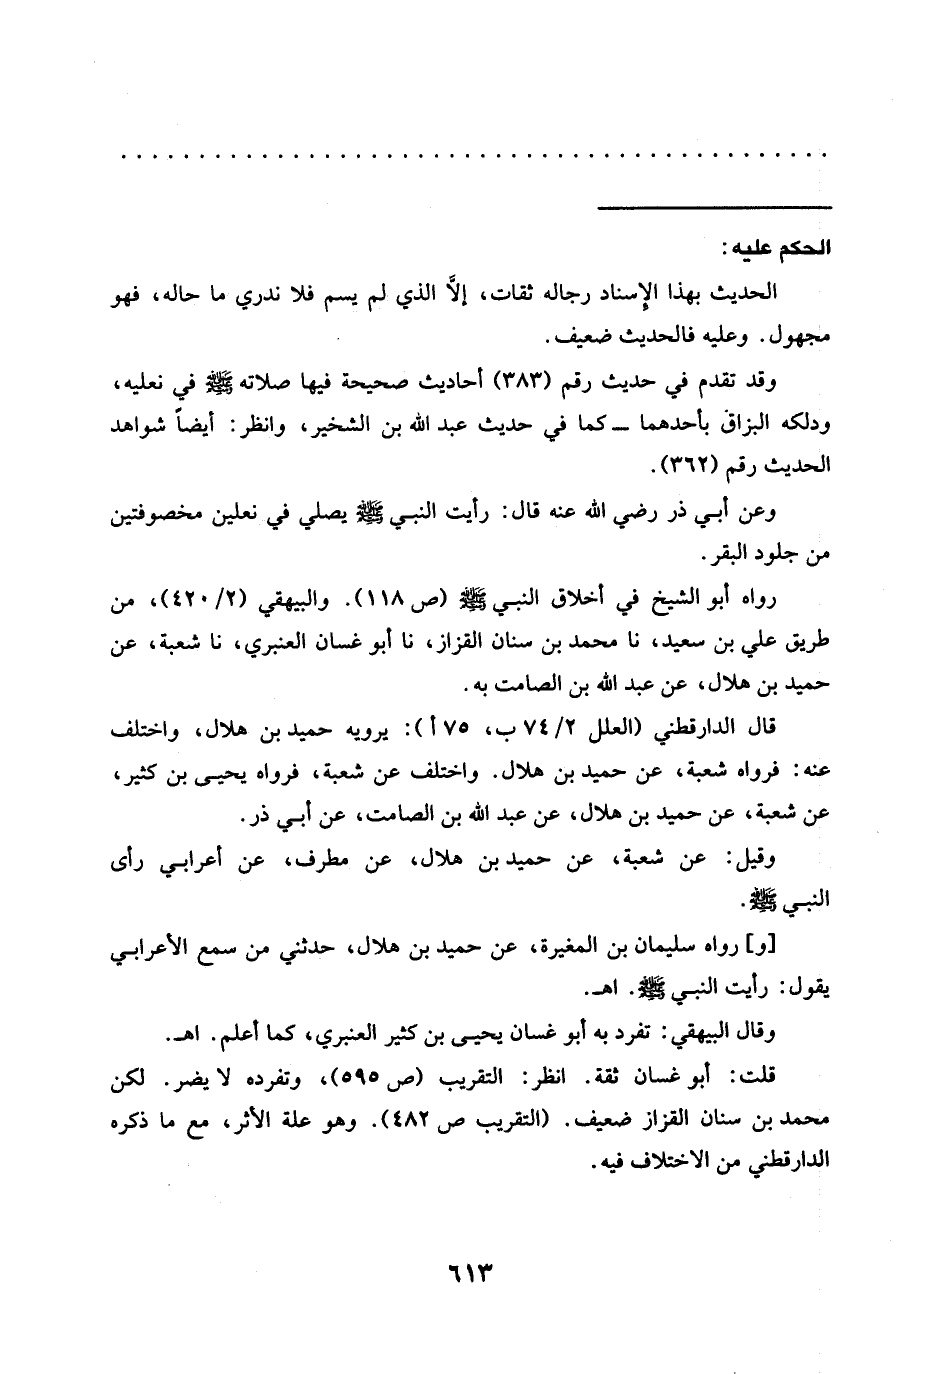 الحكم عليه:
الحديث بهذا الإسناد رجاله ثقات، إلاَّ الذي لم يسم فلا ندري ما حاله، فهو
مجهول. وعليه فالحديث ضعيف.
وقد تقدم في حديث رقم (٣٨٣) أحاديث صحيحة فيها صلاته ﷺ في نعليه،
ودلكه البزاق بأحدهما ــ كما في حديث عبد الله بن الشخير، وانظر: أيضاً شواهد
الحديث رقم (٣٦٢).
وعن أبـي ذر رضي الله عنه قال: رأيت النبـي ﷺ يصلي في نعلين مخصوفتين
من جلود البقر.
رواه أبو الشيخ في أخلاق النبـي ﷺ (ص ١١٨). والبيهقي (٢/ ٤٢٠)، من
طريق علي بن سعيد، نا محمد بن سنان القزاز، نا أبو غسان العنبري، نا شعبة، عن
حميد بن هلال، عن عبد الله بن الصامت به.
قال الدارقطني (العلل ٢/ ٧٤ ب، ٧٥ أ): يرويه حميد بن هلال، واختلف
عنه: فرواه شعبة، عن حميد بن هلال. واختلف عن شعبة، فرواه يحيـى بن كثير،
عن شعبة، عن حميد بن هلال، عن عبد الله بن الصامت، عن أبـي ذر.
وقيل: عن شعبة، عن حميد بن هلال، عن مطرف، عن أعرابـي رأى
النبـي ﷺ.
[و] رواه سليمان بن المغيرة، عن حميد بن هلال، حدثني من سمع الأعرابـي
يقول: رأيت النبـي ﷺ. اهـ.
وقال البيهقي: تفرد به أبو غسان يحيـى بن كثير العنبري، كما أعلم. اهـ.
قلت: أبو غسان ثقة. انظر: التقريب (ص ٥٩٥)، وتفرده لا يضر. لكن
محمد بن سنان القزاز ضعيف. (التقريب ص ٤٨٢). وهو علة الأثر، مع ما ذكره
الدارقطني من الاختلاف فيه.
٦١٣